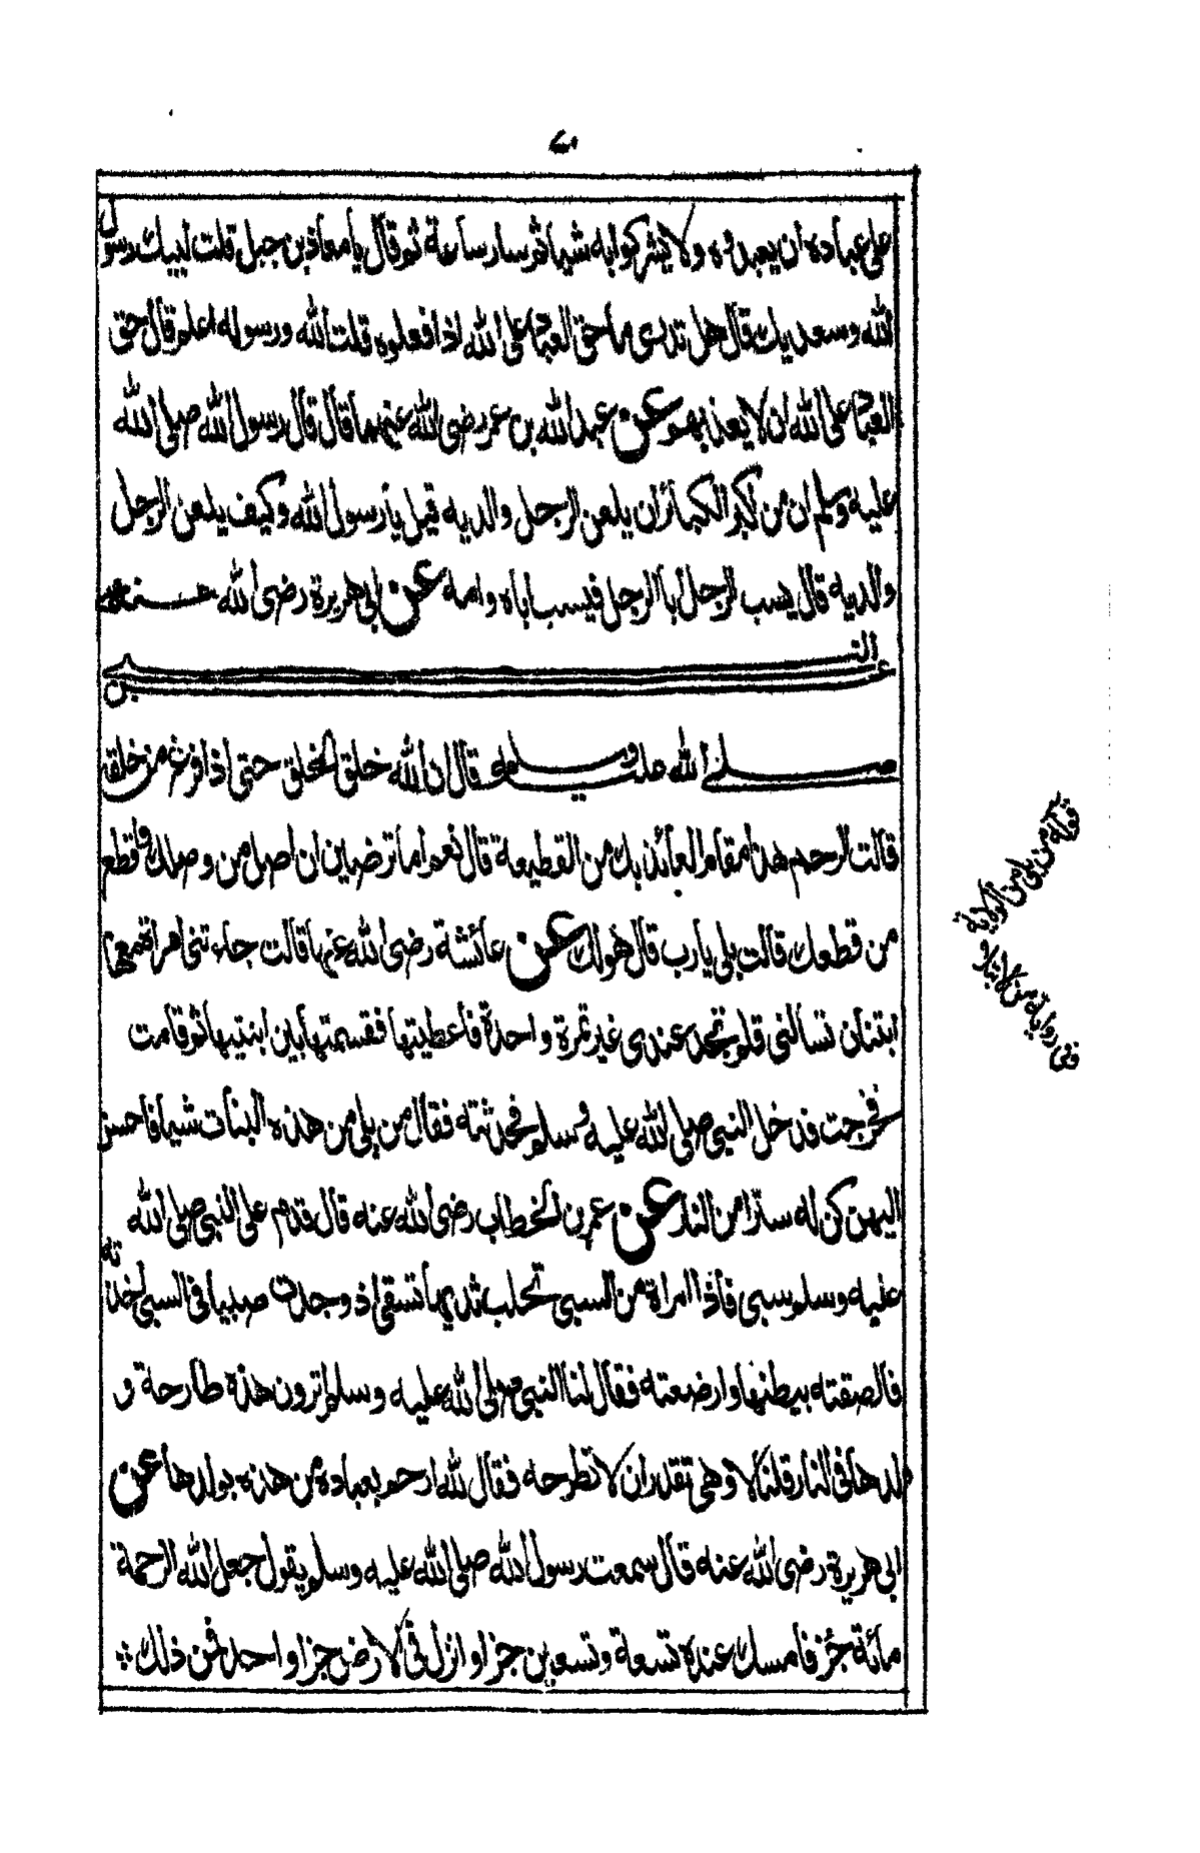 على عباده ان يعبدوه ولا يشركوا به شيا ثم سار ساعة ثم قال يا معاذ بن جبل قلت لبيك رسول
الله وسعديك قال هل تدرى ما حق العباد على الله اذا فعلوه قلت الله ورسوله اعلم قال حق
العباد على الله ان لا يعذبهم عن عبد الله بن عمر رضى الله عنهما قال قال رسول الله صلى الله
عليه وسلم ان من اكبر الكبائر ان يلعن الرجل والديه قيل يا رسول الله وكيف يلعن الرجل
والديه قال يسب الرجل ابا الرجل فيسب اباه وامه عن ابى هريرة رضى الله عنه
عن النبى
صلى الله عليه وسلم قال ان الله خلق الخلق حتى اذا فرغ من خلقه
قالت الرحم هذا مقام العائذ بك من القطيعة قال نعم اما ترضين ان اصل من وصلك واقطع
من قطعك قالت بلى يا رب قال فهو لك عن عائشة رضى الله عنها قالت جاءتنى امراة معها
ابنتان تسألنى فلم تجد عندى غير تمرة واحدة فأعطيتها فقسمتها بين ابنتيها ثم قامت
فخرجت فدخل النبى صلى الله عليه وسلم فحدثته فقال من يلى من هذه البنات شيا فاحسن
اليهن كن له سترا من النار عن عمر بن الخطاب رضى الله عنه قال قدم على النبى صلى الله
عليه وسلم سبى فأذا امراة من السبى تحلب ثديها تسقى اذ وجدت صبيا فى السبى اخذته
فالصقته ببطنها وارضعته فقال لنا النبى صلى الله عليه وسلم اترون هذه طارحة و
لدها فى النار قلنا لا وهى تقدر ان لا تطرحه فقال لله ارحم بعباده من هذه بولدها عن
ابى هريرة رضى الله عنه قال سمعت رسول الله صلى الله عليه وسلم يقول جعل الله الرحمة
مائة جزء فامسك عنده تسعة وتسعين جزا وانزل فى الارض جزا واحد فمن ذلك
قوله من يلى من الولاية
وفى رواية من الابتلاء